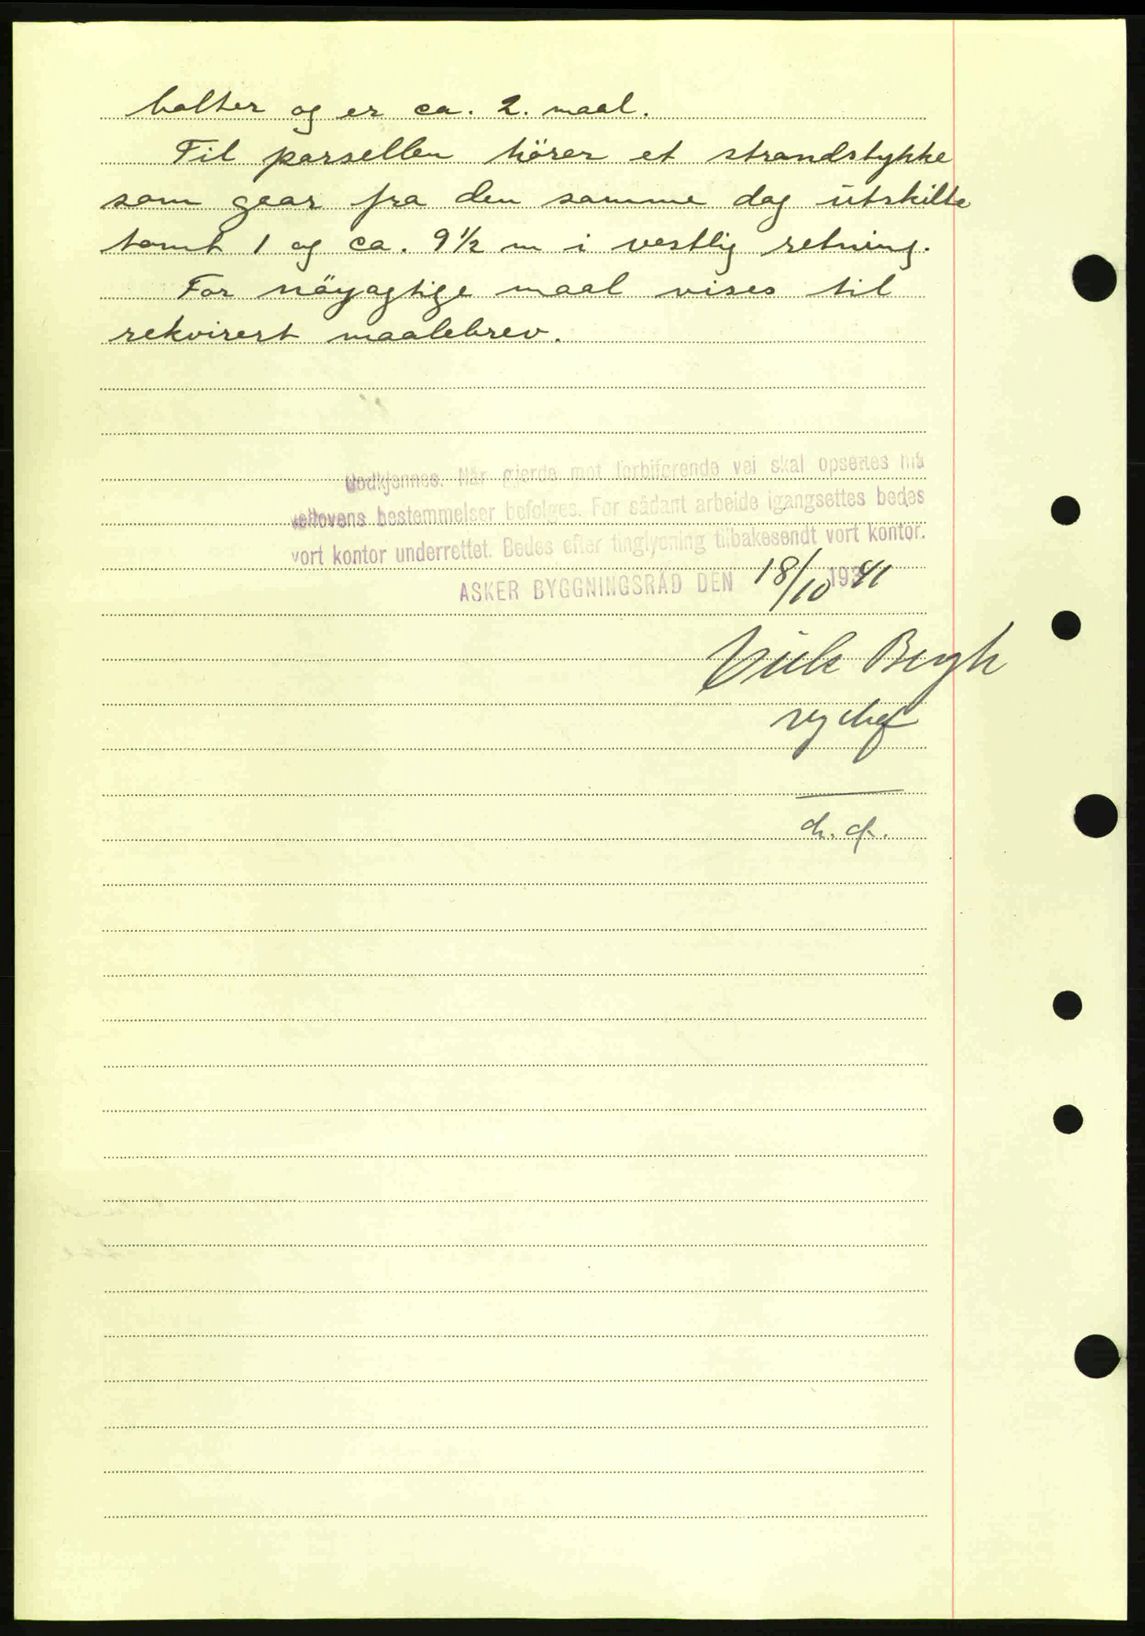 bolter og er ca. 2. maal.
Til parsellen hörer et strandstykke
som gaar fra den samme dag utskilte
tomt 1 og ca. 9½ m i vestlig retning.
For nöyagtige maal vises til
rekvirert maalebrev.
Godkjennes. Når gjerde mot forbiførende vei skal opsettes må
veilovens bestemmelser befolges. Før sådant arbeide igangsettes bedes
vort kontor underrettet. Bedes efter tinglysning tilbakesendt vort kontor.
ASKER BYGGNINGSRÅD DEN 18/10 1941
Bergh